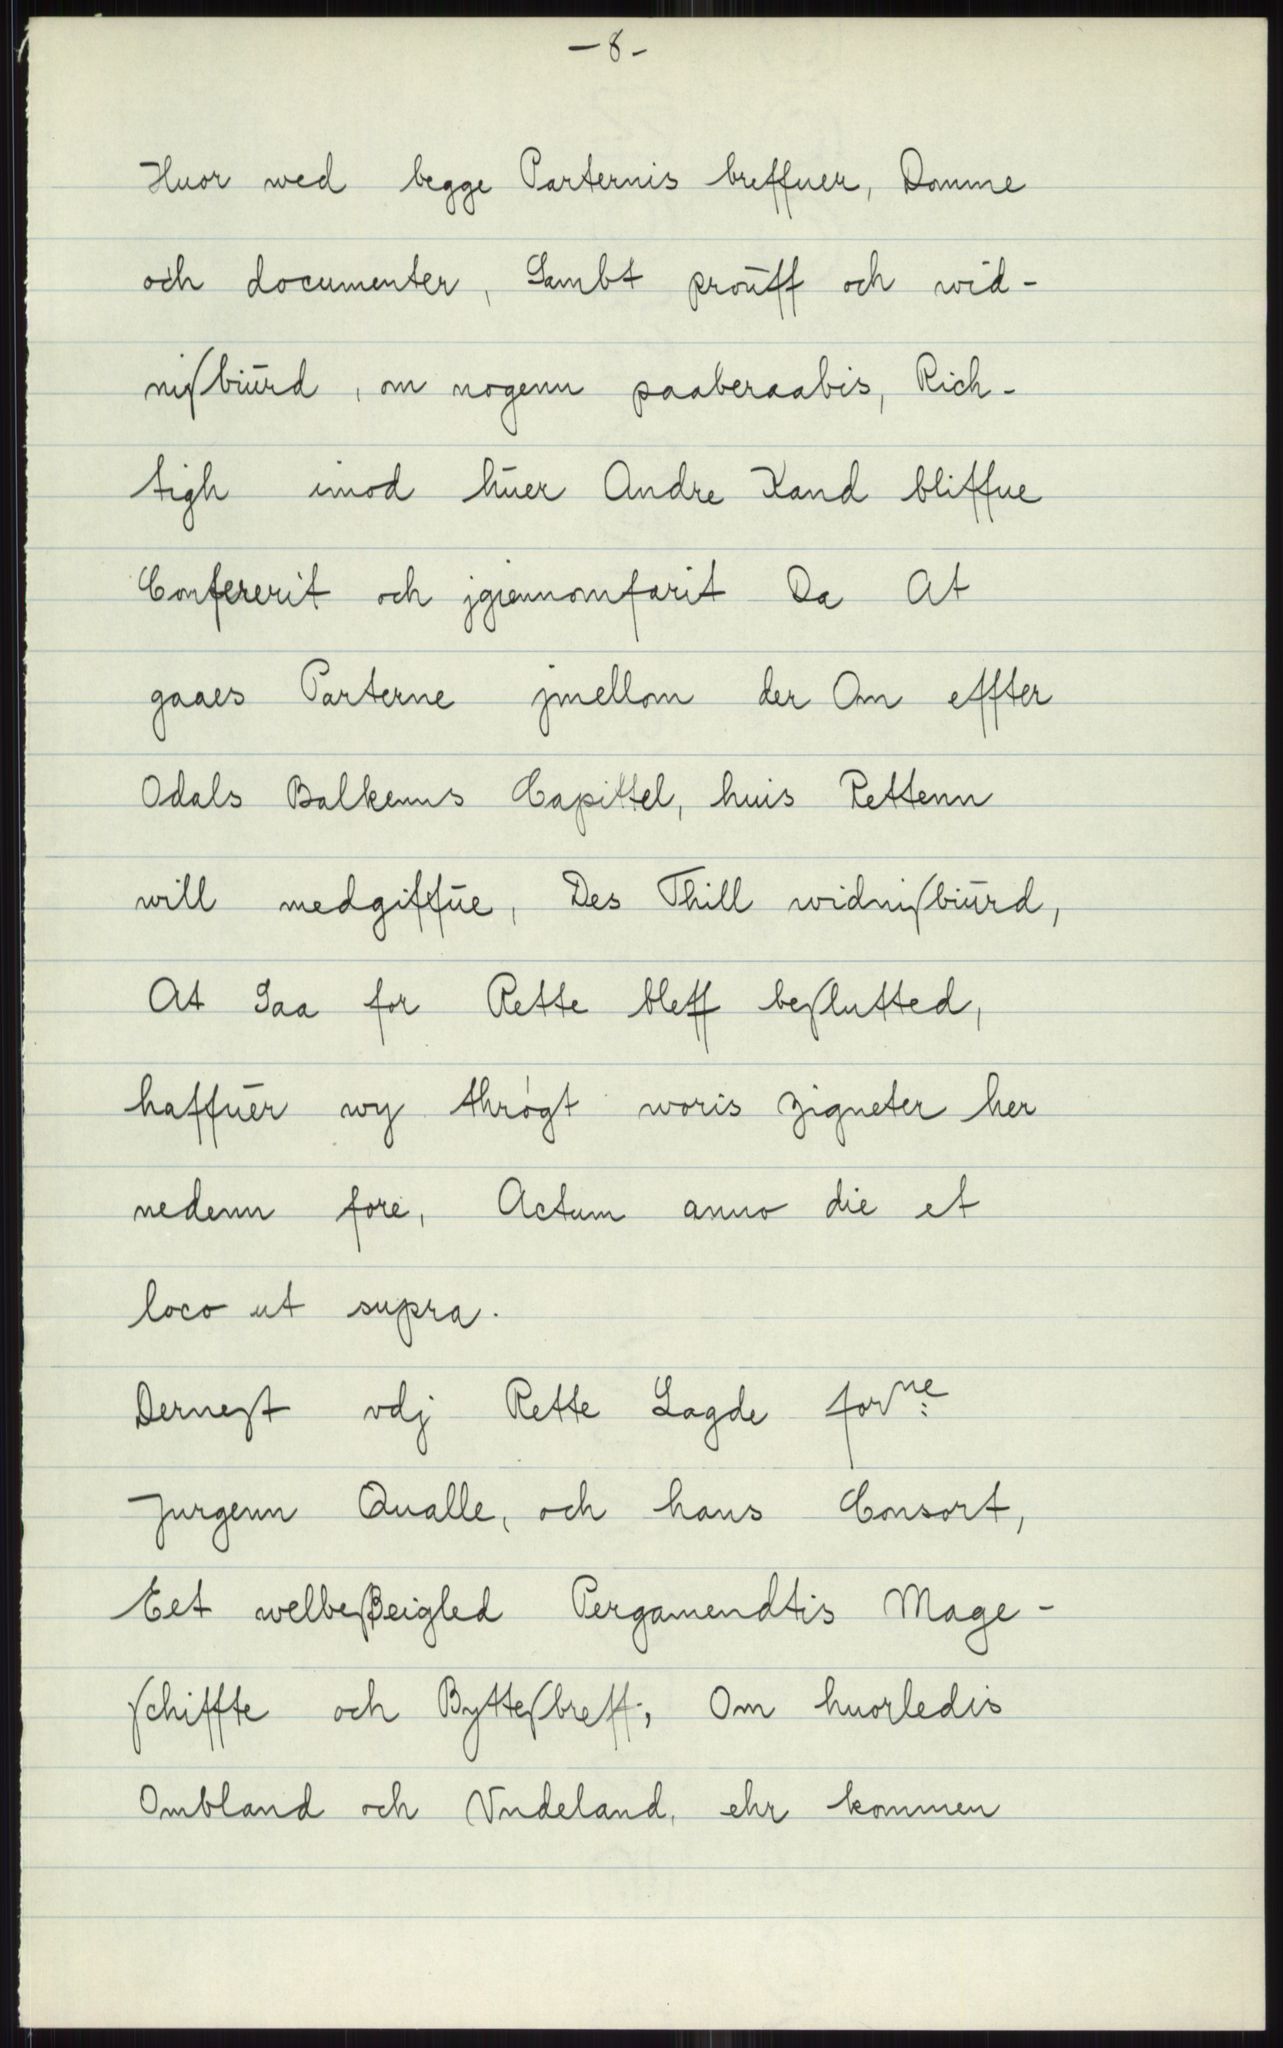 - 8 -
Huor wed begge Parternis breffuer, Domme
och documenter, Sambt proūff och wid-
niſbiūrd, om nogenn paaberaabis, Rich-
tigh imod hūer Andre Kand bliffue
Confererit och jgiennomfarit Da At
gaaes Parterne jmellom der Om effter
Odals Balkenns Capittel, huis Rettenn
will medgiffūe, Des Thill widniſbiūrd,
At Saa for Rette bleff beſlutted,
haffūer wy thrógt woris zigneter her
nedenn fore, Actum anno die et
loco ut supra.
Derneſt vdj Rette Lagde forne:
Jurgenn Qualle, och hans Consort,
Eet welbeſßeigled Pergamendtis Mage-
ſchiffte och Bytteſbreff, Om huorledis
Ombland och Vndeland, ehr kommen